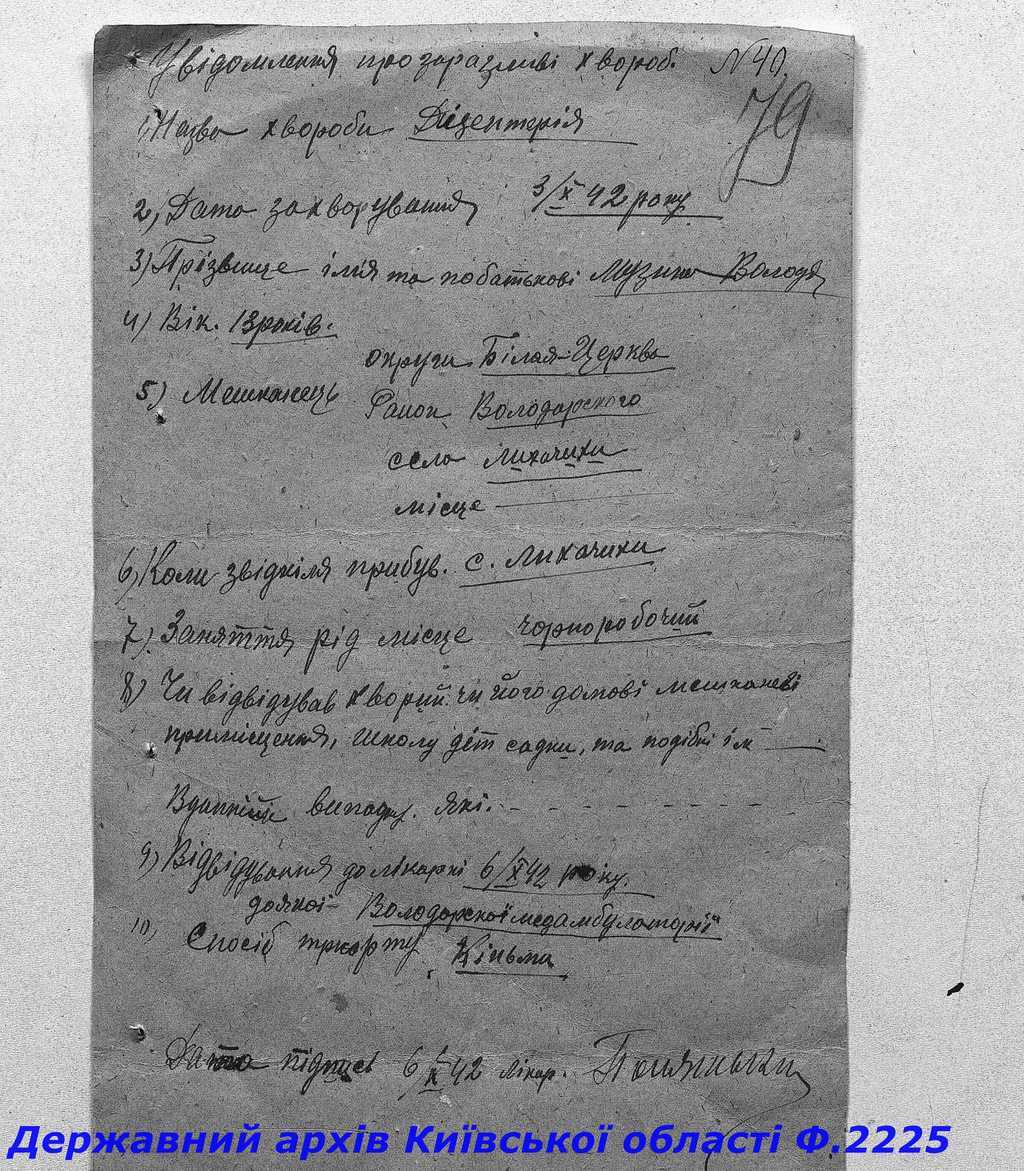 Увідомлення про заразливі хвороб. N 40.
79
1) Назва хвороби Дізентерія
2) Дата захворування 3/X 42 року
3) Прізвище імія та побатькові Музика Володя
4) Вік. 13 років.
округи Білая-Церква
5) Мешканець Район Володарского
село Лихачихи
місце
6) Коли звідкіля прибув. с. Лихачихи
7) Заняття рід місце чорноробочий
8) Чи відвідував хворий чи його домові мешканеві
приміщення, школу дет садки, та подібні їм
випадку. які.
9) Відвідування до лікарні 6/X 42 року.
доякої- Володарскої медамбулаторії
10) Спосіб Кіньма
Дата підпись 6/X 42 лікар.
Державний архів Київської області Ф.2225